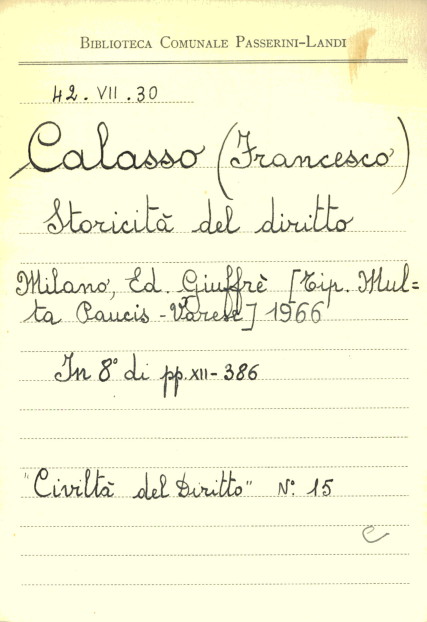 BIBLIOTECA COMUNALE PASSERINI-LANDI
42. VII. 30
Calasso (Francesco)
Storicità del diritto
Milano, Ed. Giuffrè [Tip. Mul=
ta Paucis - Varese] 1966
In 8° di pp. XII - 386
"Civiltà del Diritto" N. 15
e